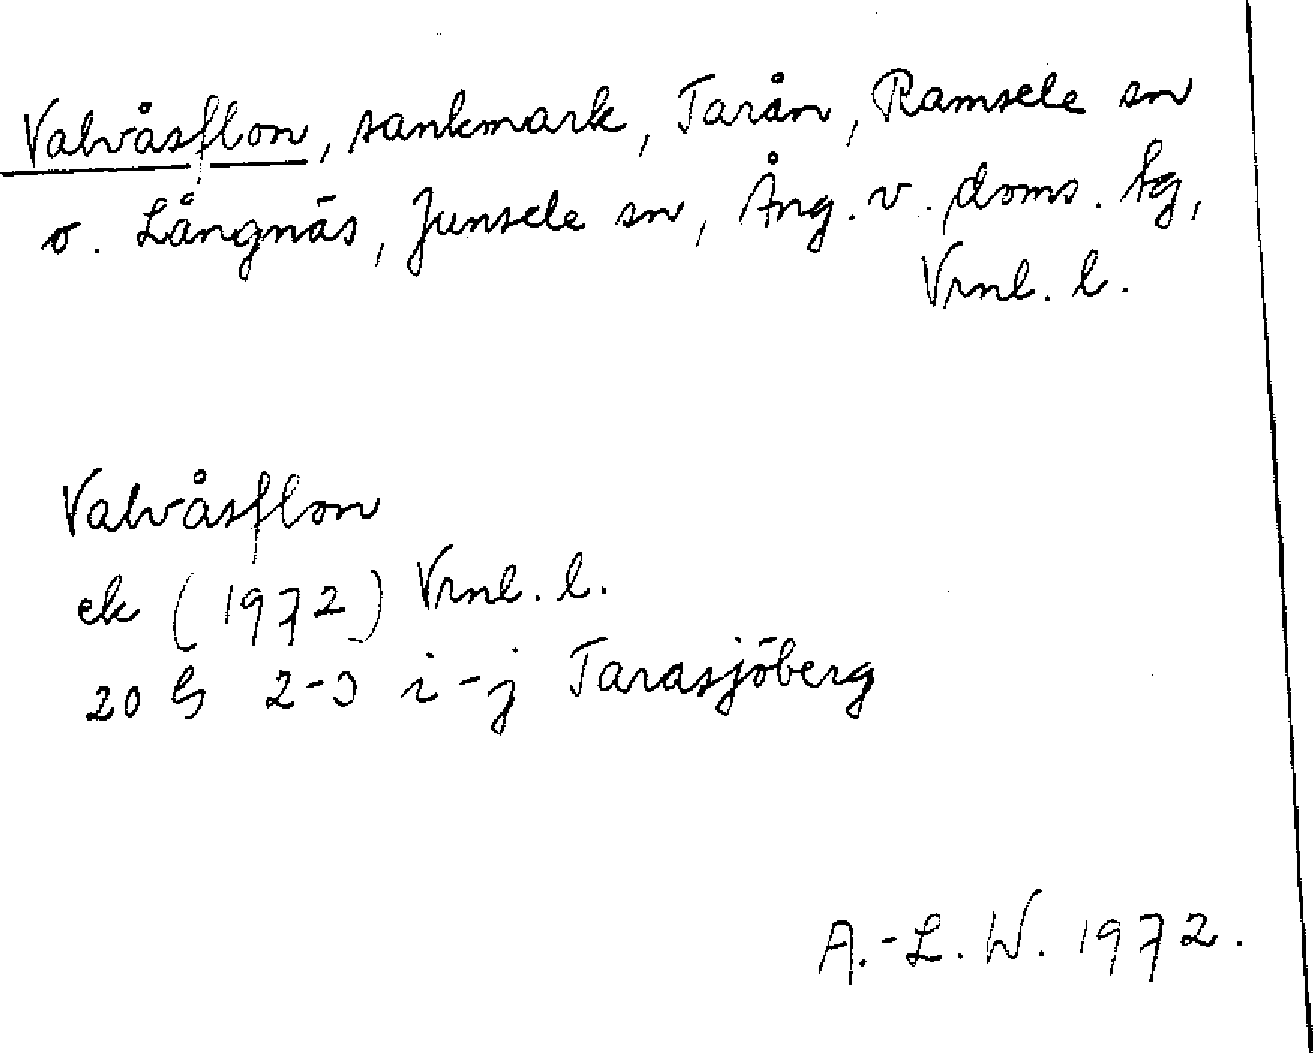 Valvåsflon, sankmark, Tarån, Ramsele sn
o. Långnäs, Junsele sn, Ång. v. doms. tg,
Vrnl. l.
Valvåsflon
ek (1972) Vrnl. l.
20 G 2-3 i-j Tarasjöberg
A.-L. W. 1972.